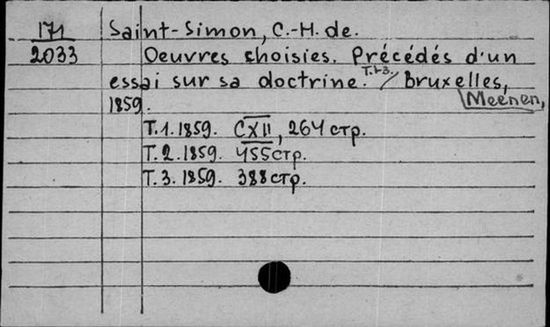 171 Saint-Simon, C.-H. de.
2033 Oeuvres choisies. Précédés d'un
essai sur sa doctrine. T.1-3. / Bruxelles,
1859. Meenen,
T. 1. 1859. CXII, 264 стр.
T. 2. 1859. 455 стр.
T. 3. 1859. 388 стр.